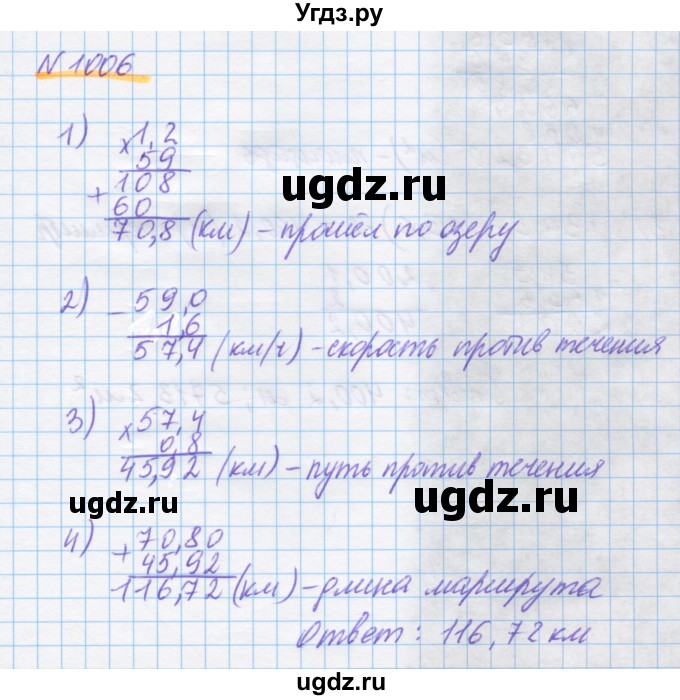 Угдз.ру
N 1006
1) × 1,2
59
+ 108
60
70,8 (км) – прошёл по озеру
ugdz.ru
2) – 59,0
1,6
57,4 (км/ч) – скорость против течения
3) × 57,4
0,8
45,92 (км) – путь против течения
ugdz.ru
ugdz.ru
4) + 70,80
45,92
116,72 (км) – длина маршрута
Ответ: 116,72 км
ugdz.ru
ugdz.ru